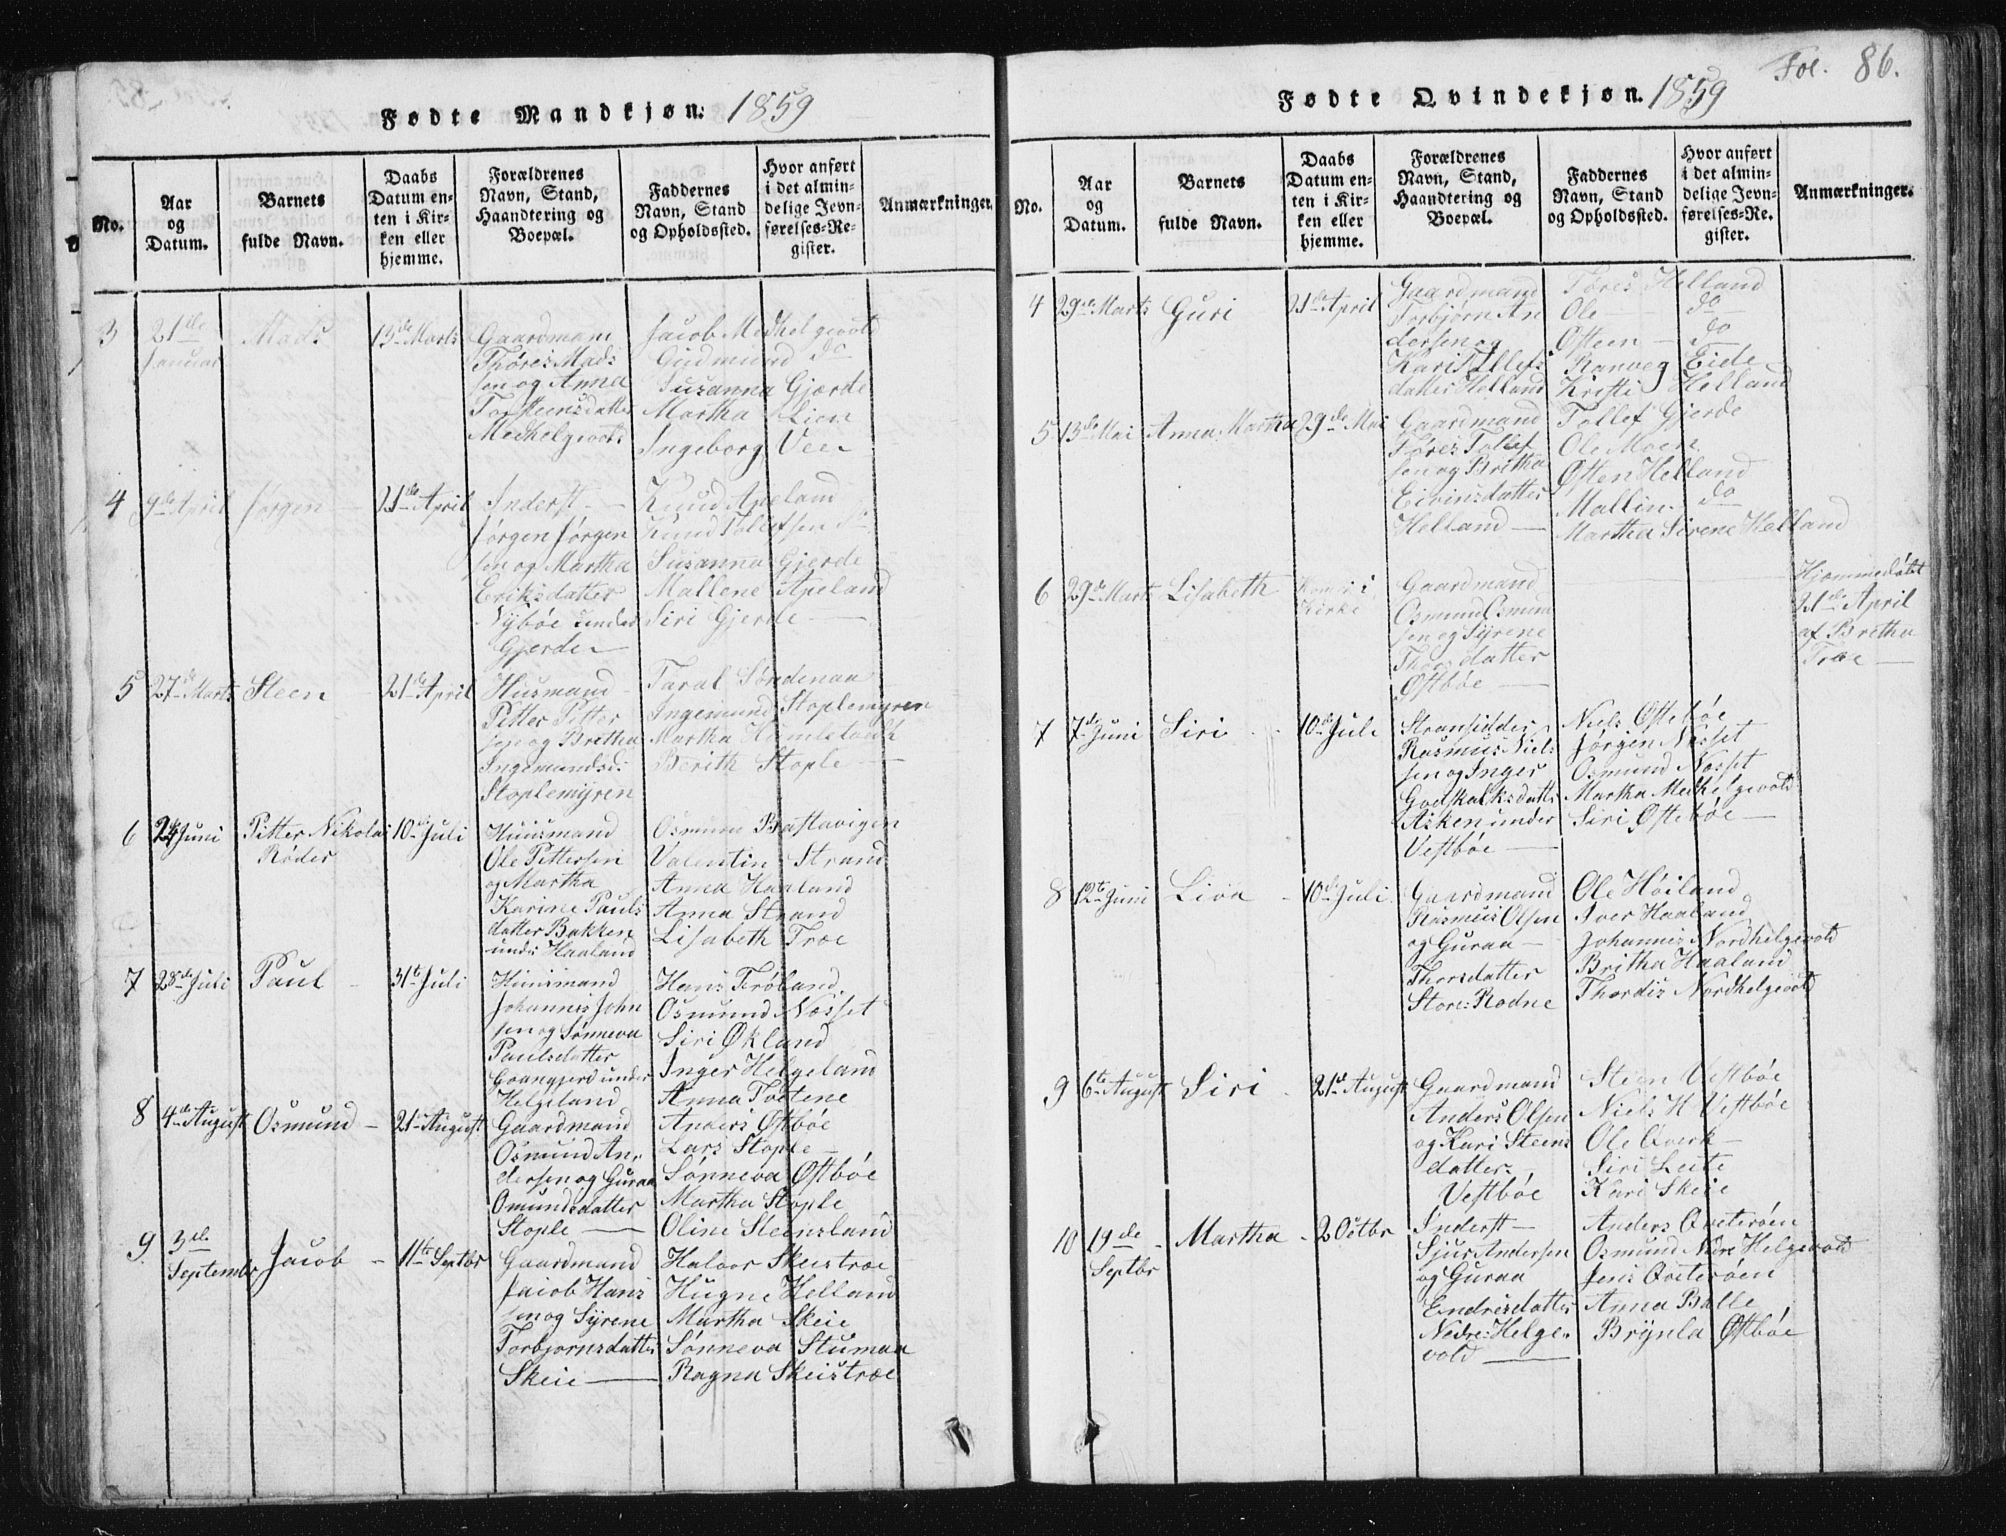 Fødte Mandkjøn: 1859
No.
Aar
og
Datum.
Barnets
fulde Navn.
Daabs
Datum en-
ten i Kir-
ken eller
hjemme.
Forældrenes
Navn, Stand,
Haandtering og
Boepæl.
Faddernes
Navn, Stand
og Opholdssted.
Hvor anført
i det almin-
delige Jevn-
førelses-Re-
gister.
Anmærkninger.
3
21de
Januar
Mads
15de Marts
Gaardmann
Thøres Mads
sen og Anna
Torsteensdatter
Meckelgevold
Jacob Meckelgevold
Gudmund do
Susanna Gjerde
Martha Lien
Ingeborg Vee
4
9de April
Jørgen
21de April
Inderst
Jørgen Jørgen
sen og Martha
Eriksdatter
Nÿbøe under
Gjerde
Knud Apeland
Knud Tollefsen
Susanna Gjerde
Mallene Apeland
Siri Gjerde
5
27de Marts
Steen
21de April
Husmand
Pitter Pitter
sen og Britha
Ingemundsd:
Stoplemyren
Taral Søndenaa
Ingemund Stoplemyren
Martha
Berith Stople
6
Juni
Pitter Nikolai
Røder
10de Juli
Huusmand
Ole Pittersen
og Martha
Karine Pauls
datter Bakken
under Haaland
Osmund Bastavigen
Valentin Strand
Anna Haaland
Anna Strand
Lisabeth Troe
7
28de Juli
Paul
31te Juli
Huusmand
Johannis John
sen og Sønneva
Paulsdatter
under
Helgeland
Hans Frøland
Osmund Nosset
Siri Økland
Inger Helgeland
Anna Toltene
8
4de August
Osmund
21de August
Gaardmand
Osmund An-
dersen og Guraa
Omundsdatter
Stople
Anders Østbøe
Lars Stople
Sønneva Østbøe
Martha Stople
Oline Steensland
9
3de
September
Jacob
11te Septbr
Gaardmand
Jacob Hans
sen og Sÿrene
Torbjørnsdatter
Skeie
Halvor Skeistroe
Hugne Helland
Martha Skeie
Sønneva Stumaa
Ragna Skeistroe
Fol. 86.
Fødte Qvindekjøn. 1859
No.
Aar
og
Datum.
Barnets
fulde Navn.
Daabs
Datum en-
ten i Kir-
ken eller
hjemme.
Forældrenes
Navn, Stand,
Haandtering og
Boepæl.
Faddernes
Navn, Stand
og Opholdssted.
Hvor anført
i det almin-
delige Jevn-
førelses-Re-
gister.
Anmærkninger.
4
29de Marts
Guri
21de April
Gaardmand
Torbjørn An
dersen og
Kari Ellefs
datter Helland
Tøres Helland
Ole do
Osteen do
Ranveg Eide
Kristi Helland
5
13de Mai
Anna Martha
29de Mai
Gaardmand
Tøres Tollef
sen og Britha
Eivinsdatter
Helland
Tollef Gjerde
Ole Moen
Østen Helland
Mallin do
Martha Sirene Helland
6
29de Marts
Lisabeth
i
Kirke
Gaardmand
Osmund Osmund
sen og Sÿrene
Thorsdatter
Østbøe
Hjemmedøbt
21de April
af Britha
Troe
7
7de Juni
Siri
10de Juli
Stransidder
Rasmus Niels
sen og Inger
Godskalksdatter
Asken under
Vestbøe
Niels Østebøe
Jørgen Nosset
Osmund Nosset
Martha Meckelgevold
Siri Østebøe
8
12te Juni
Liva
10de Juli
Gaardmand
Rasmus Olsen
og Guraa
Thorsdatter
Store: Rodne
Ole Høiland
Iver Haaland
Johannis Nordhelgevold
Britha Haaland
Thordis Nordhelgevold
9
6te August
Siri
21de August
Gaardmand
Anders Olsen
og Kari Steens
datter
Vestbøe
Steen Vestbøe
Niels H Vestbøe
Ole Qverk
Siri Leite
Kari Skeie
10
19de
Septbr
Martha
2 Octbr
Inderst
Sjur Andersen
og Guraa
Endresdatter
Nedre: Helge-
vold
Anders Qveterøen
Osmund Nedre Helgevold
Jens Qveterøen
Anna Balle
Brÿnla Østbøe